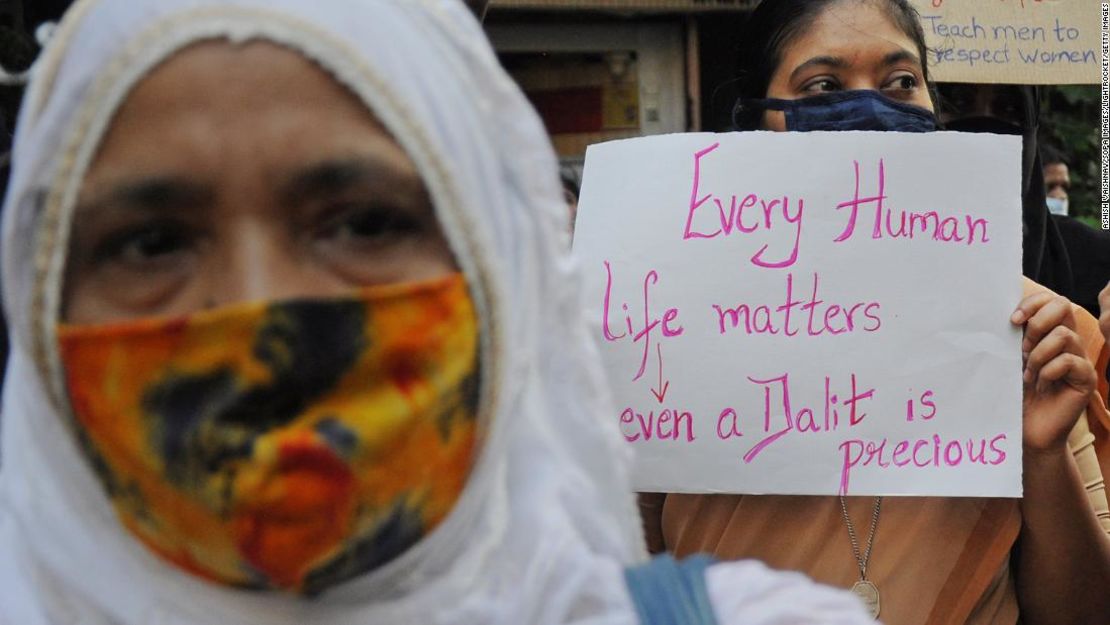 Teach men to
respect women
Every Human
life matters
even a Dalit is
precious
ASHISH VAISHNAV/SOPA IMAGES/LIGHTROCKET/GETTY IMAGES